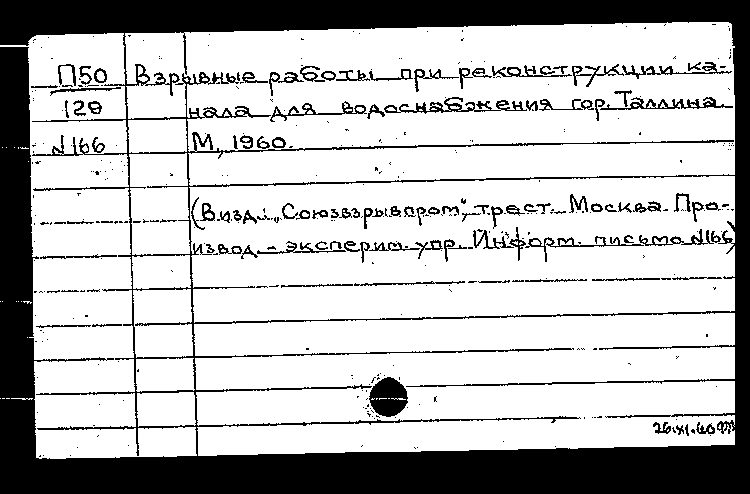 П50 Взрывные работы при реконструкции ка-
120 нала для водоснабжения гор. Таллина.
№166 М., 1960.
(В изд.: „Союзвзрывпром“, трест. Москва. Про-
извод.-эксперим. упр. Информ. письмо №166)
26.XI.60